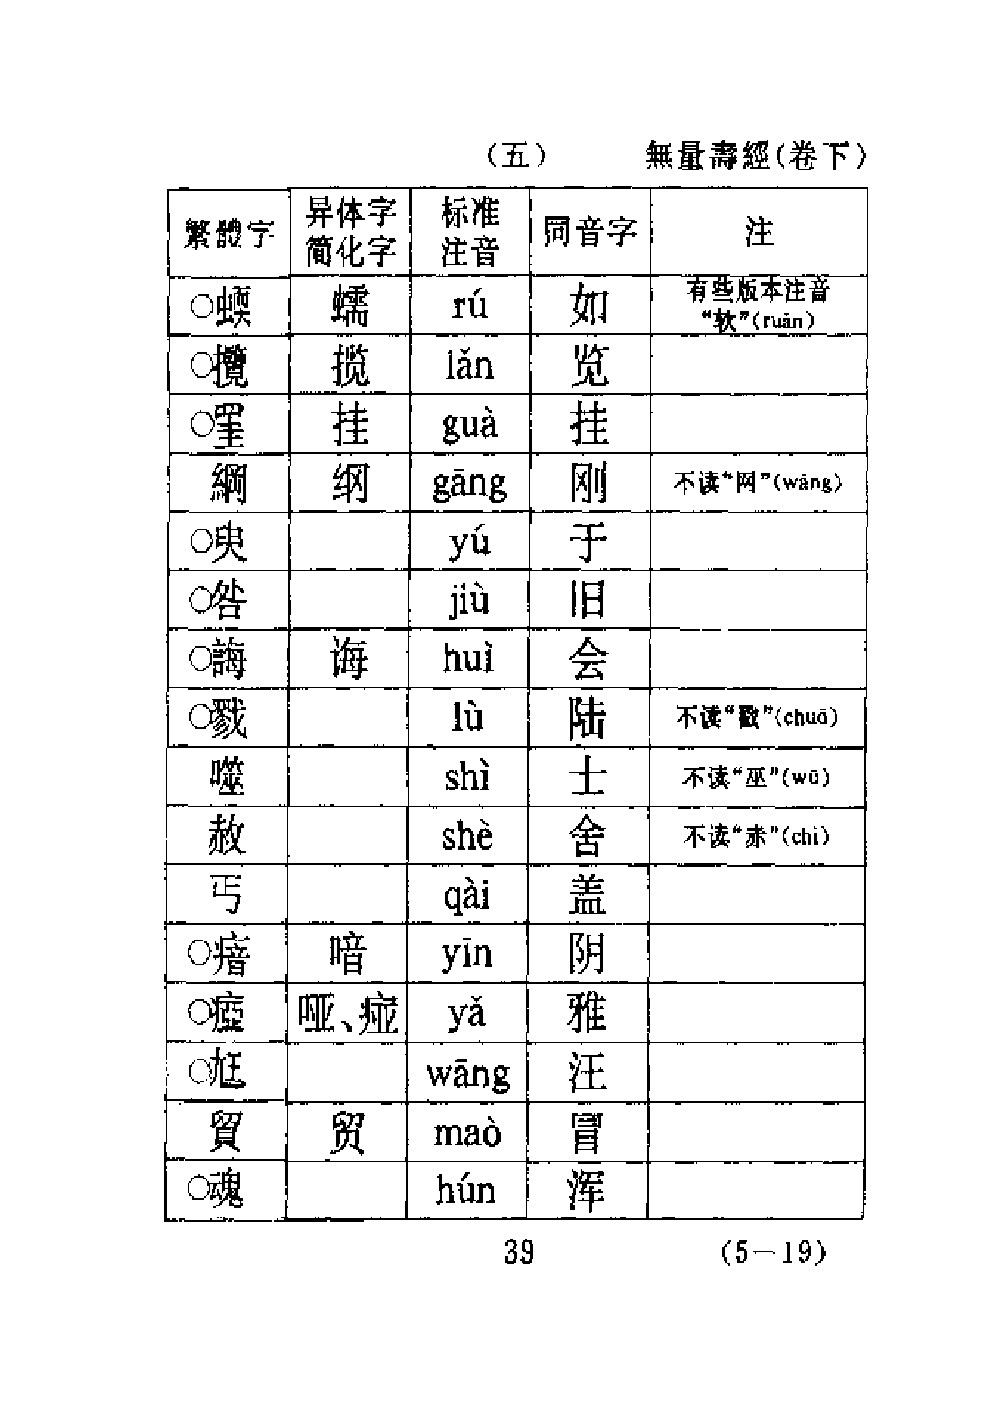 (五) 無量壽經(卷下)
繁體字 异体字 简化字 标准 注音 同音字 注
○蝡 蠕 rú 如 有些版本注音“软”(ruǎn)
○攬 揽 lǎn 览
○罣 挂 guà 挂
綱 纲 gāng 刚 不读“网”(wǎng)
○臾 yú 于
○咎 jiù 旧
○誨 诲 huì 会
○戮 lù 陆 不读“戳”(chuō)
噬 shì 士 不读“巫”(wū)
赦 shè 舍 不读“赤”(chì)
丐 qài 盖
○瘖 喑 yīn 阴
○瘂 哑、痖 yǎ 雅
○尫 wāng 汪
貿 贸 maò 冒
○魂 hún 浑
39 (5-19)